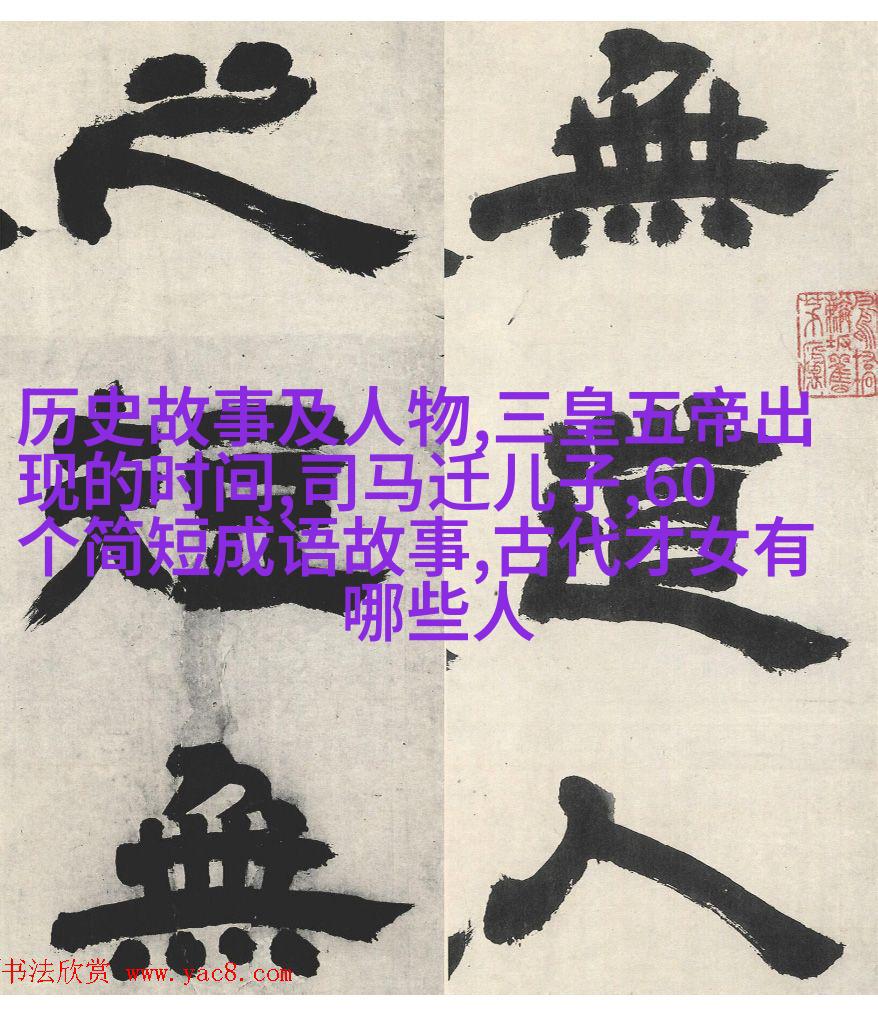 無道人
之短無
历史故事及人物,三皇五帝出
现的时间,司马迁儿子,60
个简短成语故事,古代才女有
哪些人
书法欣赏 www.yac8.com